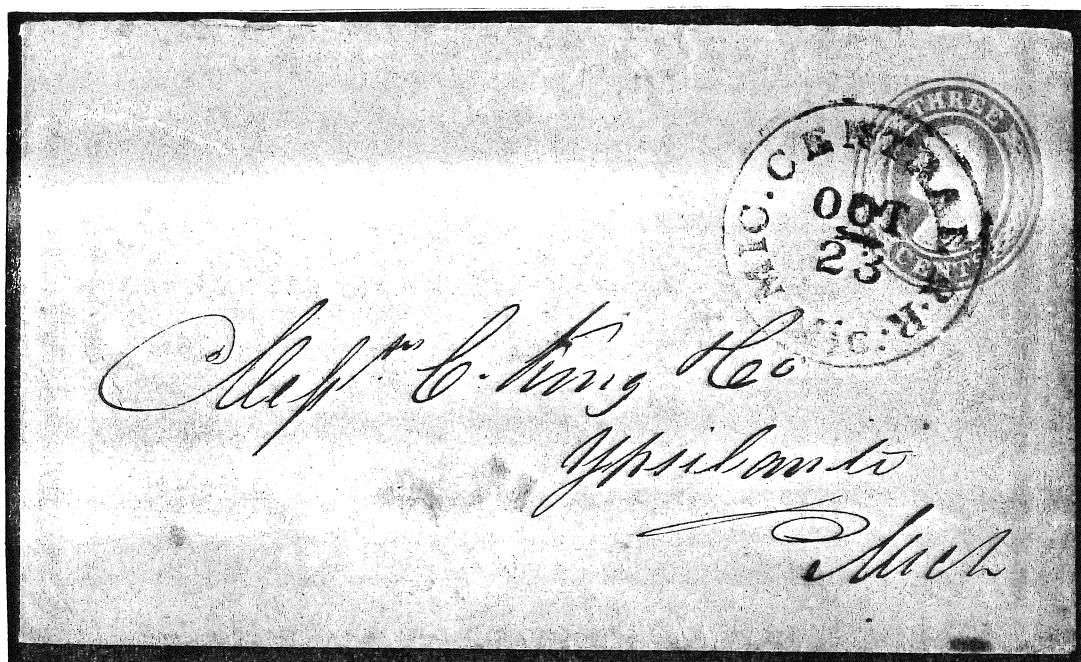 THREE
CENTS
MIC. CENTRAL R.R. MIC.
OCT
23
Messrs C. King & Co
Ypsilanti
Mich